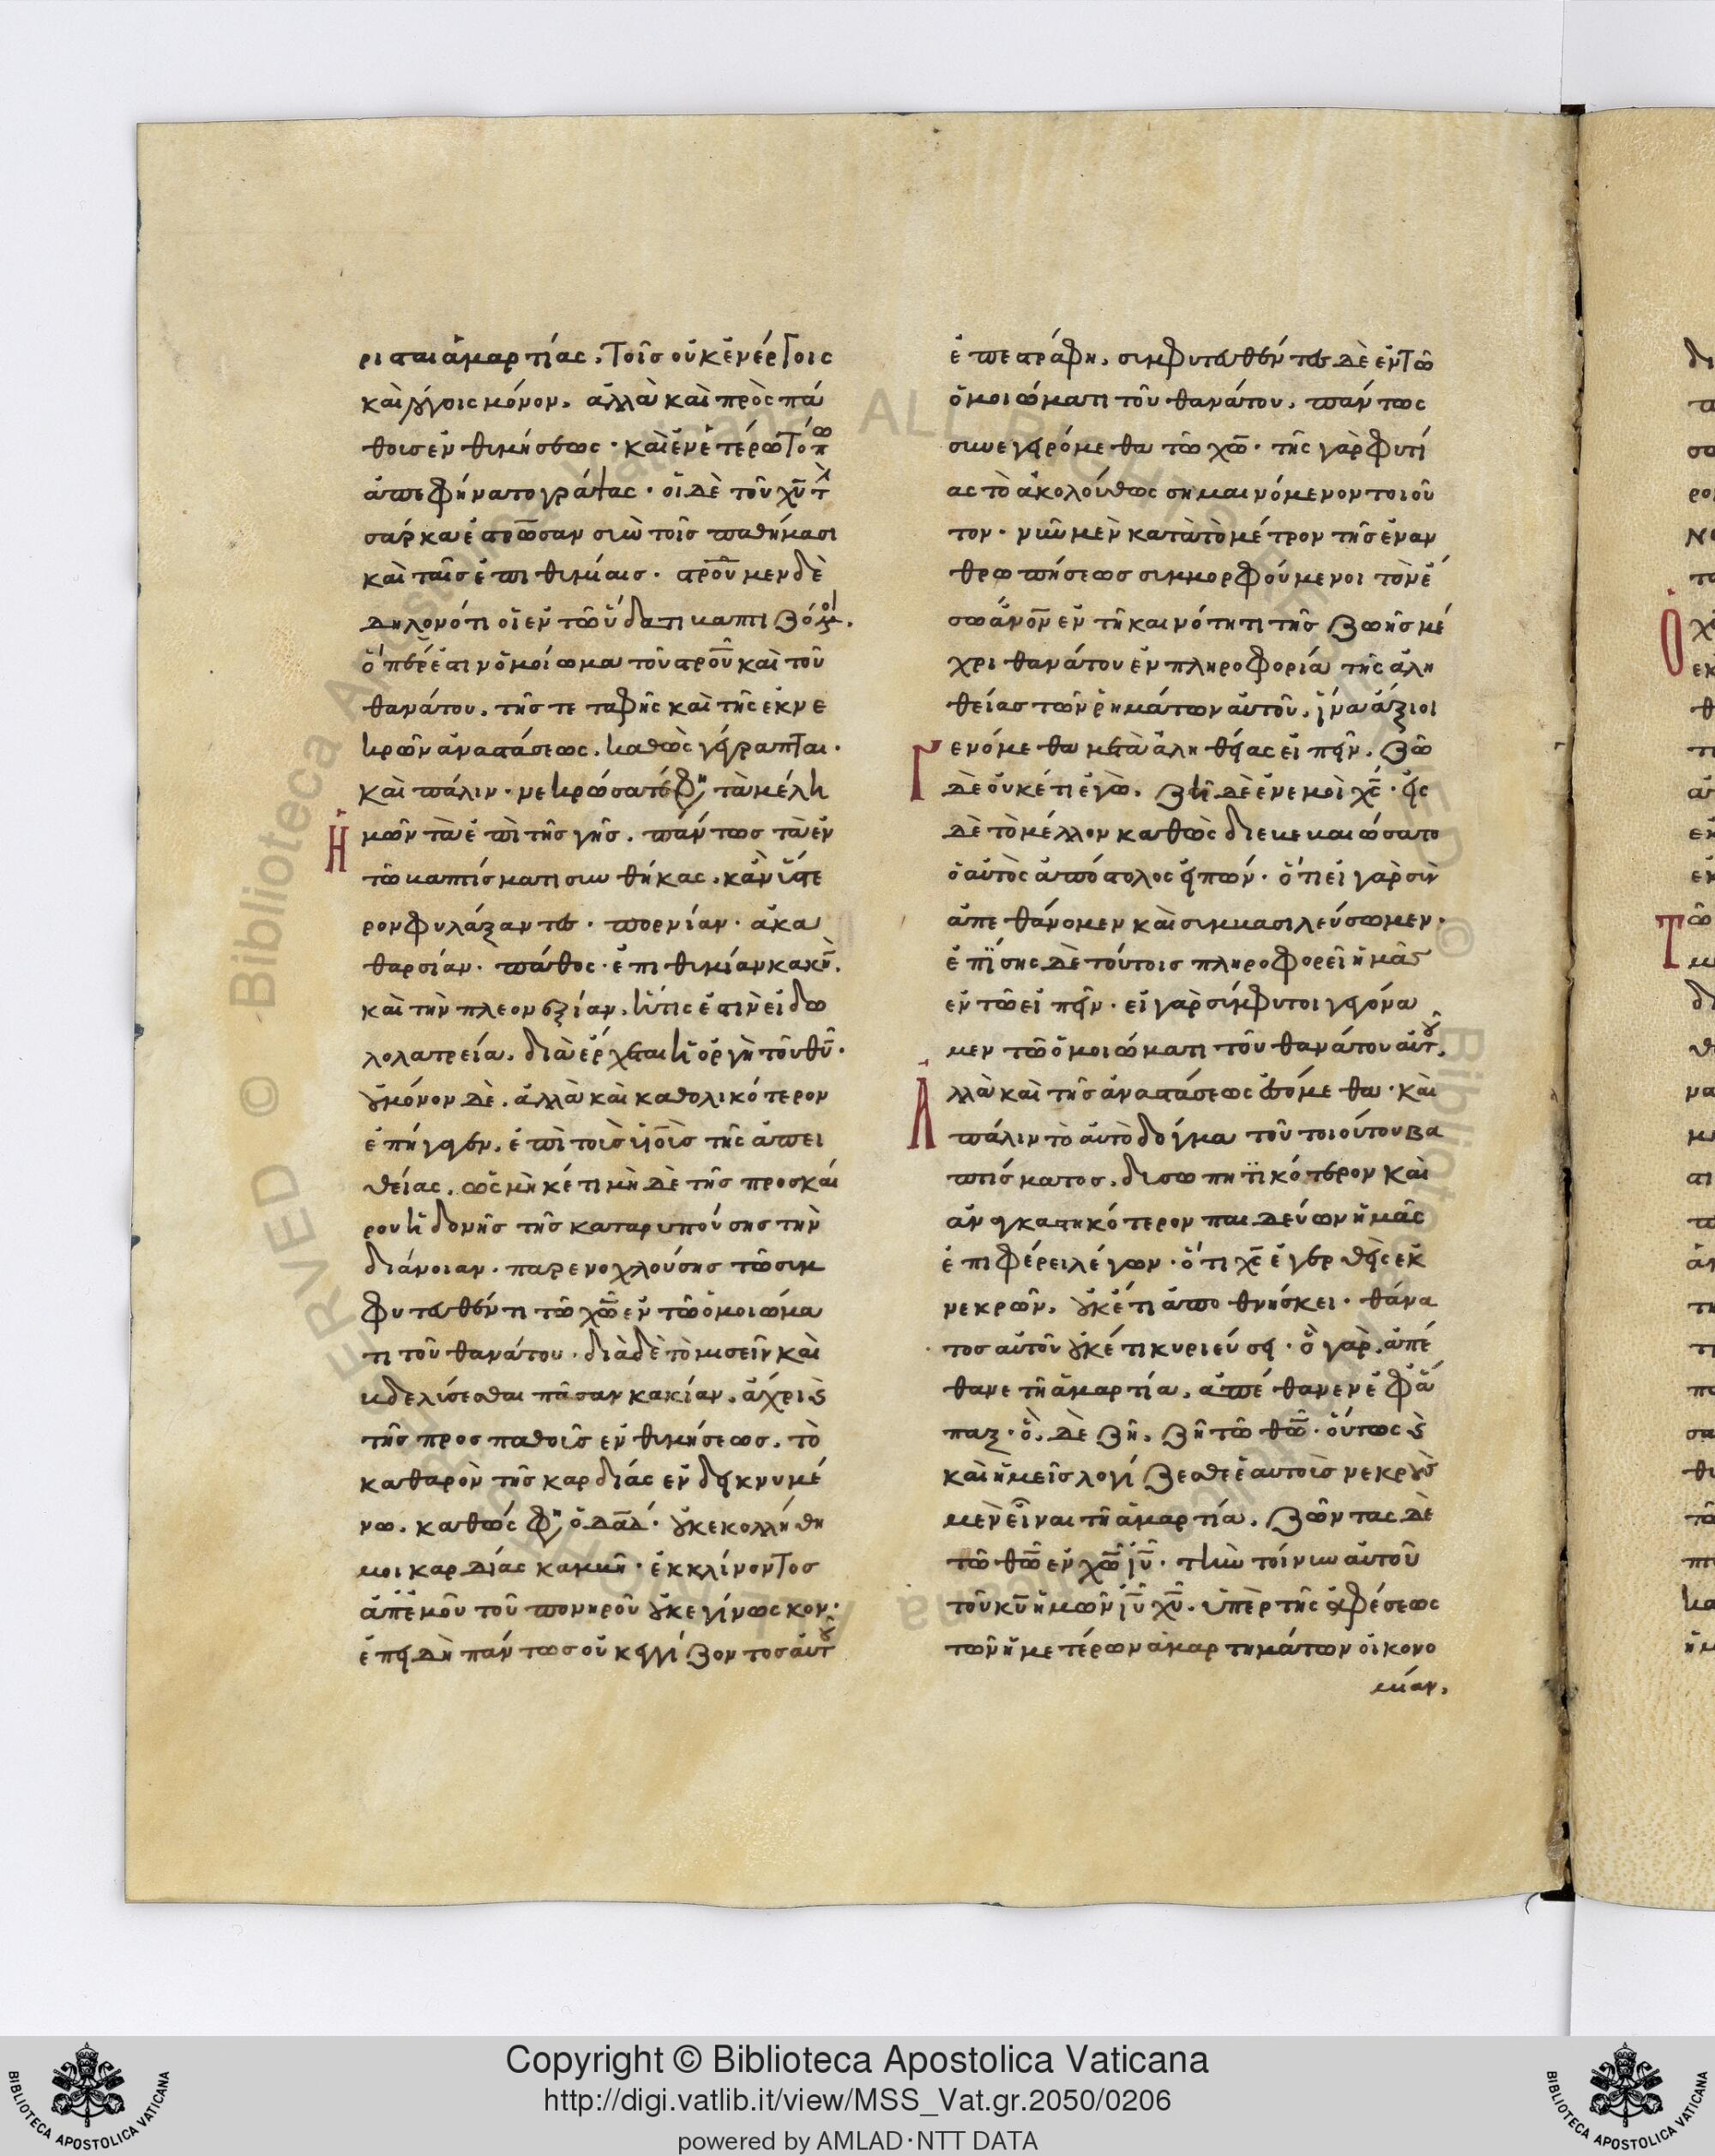 ρισται ἁμαρτίας. τοῖς οὐκ ἐν ἔργοις
καὶ λόγοις μόνον. ἀλλὰ καὶ πρὸς πά
θοις ἐνθυμήσεως· καὶ ἐν ἑτέρω τόπω
ἀπεφήνατο γράψας· οἱ δὲ τοῦ χυ τὴν
σάρκα ἐσταύρωσαν σὺν τοῖς παθήμασι
καὶ ταῖς ἐπιθυμίαις·
δηλονότι οἱ ἐν τῶ ὕδατι βαπτιζόμενοι.
ὅπερ ἐστὶν ὁμοίωμα τοῦ στρου καὶ τοῦ
θανάτου. τῆς τε ταφῆς καὶ τῆς ἐκ νε
κρῶν ἀναστάσεως. καθὼς γέγραπται·
καὶ πάλιν· νεκρώσατέ φη, τὰ μέλη
ἡμῶν τὰ ἐπὶ τῆς γῆς. πάντως τὰ ἐν
τῶ βαπτίσματι συνθήκας. κἂν ὕστε
ρον φυλάξαντες· πορνίαν· ἀκα
θαρσίαν· πάθος· ἐπιθυμίαν κακὴν.
καὶ τὴν πλεονεξίαν. ἥτις ἐστὶν εἰδω
λολατρεία. διὰ ἔρχεται ἡ ὀργὴ τοῦ θυ·
οὐ μόνον δὲ. ἀλλὰ καὶ καθολικότερον
ἐπήγαγεν. ἐπὶ τοὺς υἱοὺς τῆς ἀπει
θείας. ὡς μηκέτι μὴ δὲ τῆς προσκαί
ρου ἡδονῆς τῆς καταρυπούσης τὴν
διάνοιαν· παρενοχλούσης τῶ συμ
φυτωθέντι τῶ χω ἐν τῶ ὁμοιώμα
τι τοῦ θανάτου· διὰ δὲ τὸ μισεῖν καὶ
βδελύσεσθαι πᾶσαν κακίαν. ἄχρι καὶ
τῆς προσπαθοῦς ἐνθυμήσεως. τὸ
καθαρὸν τῆς καρδίας ἐνδεικνυμέ
νω. καθώς φη, ὁ δαδ· οὐκ ἐκολλήθη
μοι καρδίας καμβὴ· ἐκκλίνοντος
ἀπ' ἐμοῦ τοῦ πονηροῦ οὐκ ἐγίνωσκον·
ἐπειδὴ πάντως οὐκ ἐγγίζοντος αὐτοῦ
ἐπεστράφη. συμφυτωθέντες δὲ ἐν τῶ
ὁμοιώματι τοῦ θανάτου. πάντως
συνεγηρόμεθα τῶ χω· τῆς γὰρ φυτί
ας τὸ ἀκολούθως σημαινόμενον τοιοῦ
τον· νῦν μὲν κατὰ τὸ μέτρον τῆς ἐναν
θρωπήσεως συμμορφούμενοι τὸν ἔ
σω ανον ἐν τῆ καινότητι τῆς ζωῆς μέ
χρι θανάτου ἐν πληροφορία τῆς ἀλη
θείας τῶν ῥημάτων αὐτοῦ. ἵνα ἄξιοι
γενόμεθα μετὰ ἀληθείας εἰπεῖν. ζῶ
δὲ οὐκέτι ἐγὼ. ζῆ δὲ ἐν ἐμοὶ χς· εἰς
δὲ τὸ μέλλον καθὼς διεβεβαιώσατο
ὁ αὐτὸς ἀπόστολος εἰπών· ὅτι εἰ γὰρ συν
ἀπεθάνομεν καὶ συμβασιλεύσωμεν·
ἐπίσης δὲ τούτοις πληροφορεῖ ἡμᾶς
ἐν τῶ εἰπεῖν· εἰ γὰρ σύμφυτοι γεγόνα
μεν τῶ ὁμοιώματι τοῦ θανάτου αὐτοῦ.
ἀλλὰ καὶ τῆς ἀναστάσεως ἐσόμεθα· καὶ
πάλιν τὸ αὐτὸ δόγμα τοῦ τοιούτου βα
πτίσματος. δυσωπητικότερον καὶ
ἀναγκαστικότερον παιδεύων ἡμᾶς
ἐπιφέρει λέγων· ὅτι χς ἐγερθεὶς ἐκ
νεκρῶν. οὐκέτι ἀποθνήσκει· θάνα
τος αὐτοῦ οὐκέτι κυριεύσει· ὃ γὰρ ἀπέ
θανε τῆ ἁμαρτία. ἀπέθανεν ἐφά
παξ· ὃ δὲ ζῆ. ζῆ τῶ θω· οὕτως καὶ
καὶ ἡμεῖς λογίζεσθε ἑαυτοὺς νεκροὺς
μὲν εἶναι τῆ ἁμαρτία. ζῶντας δὲ
τῶ θω ἐν χω ιυ· τὴν τοίνυν αὐτοῦ
τοῦ κυ ἡμῶν ιυ χυ. ὑπὲρ τῆς ἀφέσεως
τῶν ἡμετέρων ἁμαρτημάτων οἰκονο
μίαν.
Copyright © Biblioteca Apostolica Vaticana
http://digi.vatlib.it/view/MSS_Vat.gr.2050/0206
powered by AMLAD·NTT DATA
BIBLIOTECA APOSTOLICA VATICANA
BIBLIOTECA APOSTOLICA VATICANA